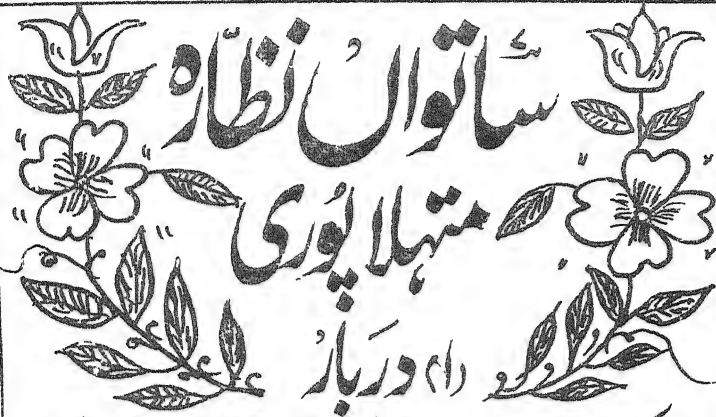 ساتواں نظّارہ
متہلا پُوری
رام دربار